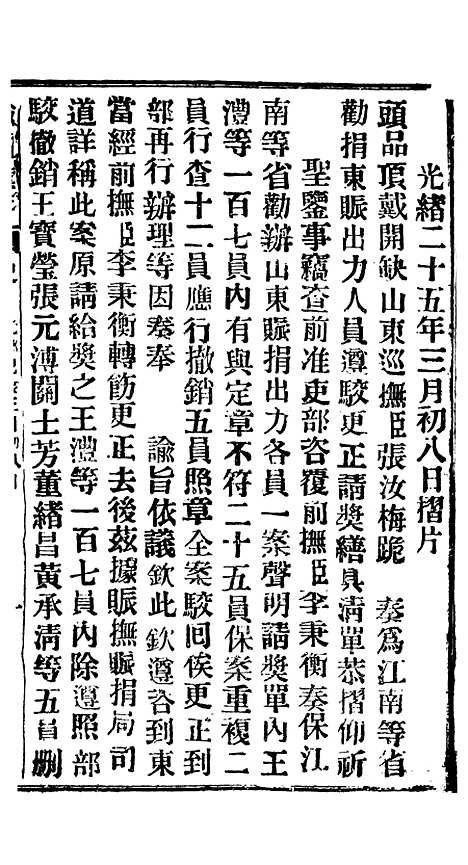 光緒二十五年三月初八日摺片
頭品頂戴開缺山東巡撫臣張汝梅跪　奏爲江南等省
勸捐東賑出力人員遵駮更正請獎繕具清單恭摺仰祈
聖鑒事竊查前准吏部咨覆前撫臣李秉衡奏保江
南等省勸辦山東賑捐出力各員一案聲明請獎單內王
澧等一百七員內有與定章不符二十五員保案重複二
員行查十二員應行撤銷五員照章全案駮回俟更正到
部再行辦理等因奏奉　　諭旨依議欽此欽遵咨到東
當經前撫臣李秉衡轉飭更正去後茲據賑撫賑捐局司
道詳稱此案原請給獎之王澧等一百七員內除遵照部
駮撤銷王寶瑩張元溥關士芳董緒昌黃承清等五員刪